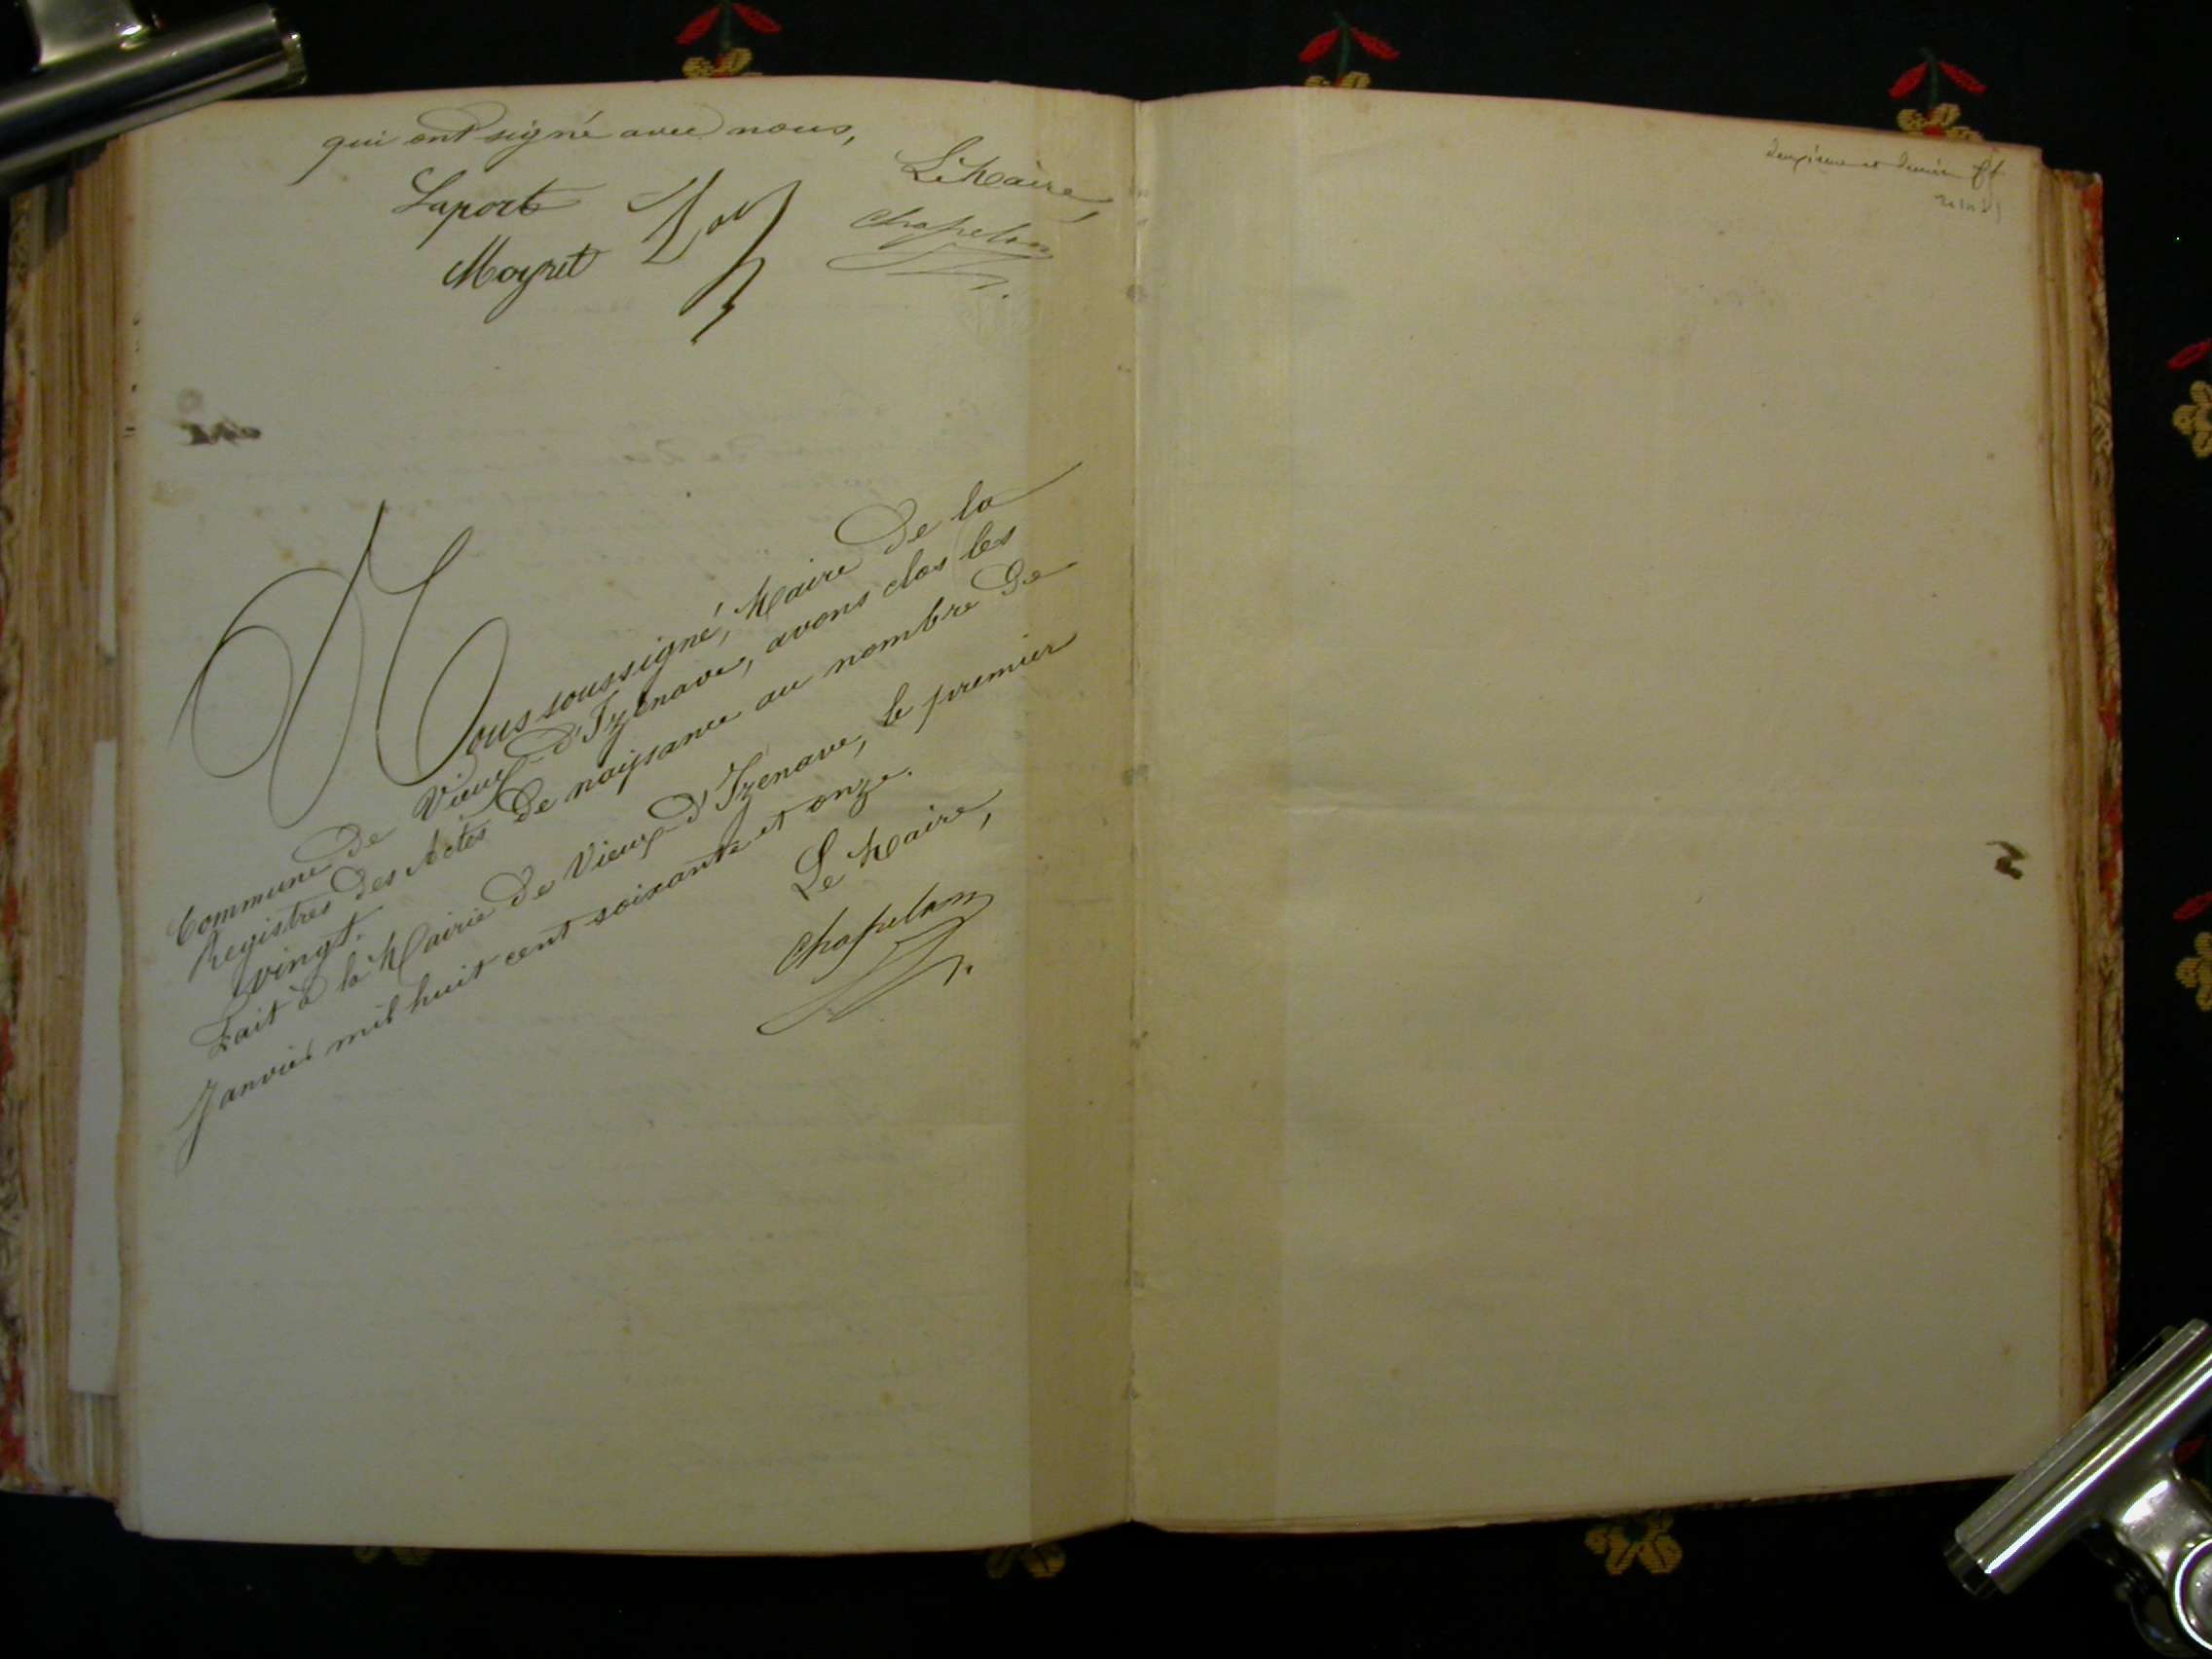 qui ont signé avec nous,
Le Maire,
Laporte
Chapelon
Moyret
Nous soussigné, Maire de la
Commune de Vieux-d'Izenave, avons clos les
Registres des Actes de naissance au nombre de
vingt.
Fait à la Mairie de Vieux-d'Izenave, le premier
Janvier mil huit cent soixante et onze.
Le Maire,
Chapelon
deuxième et dernier